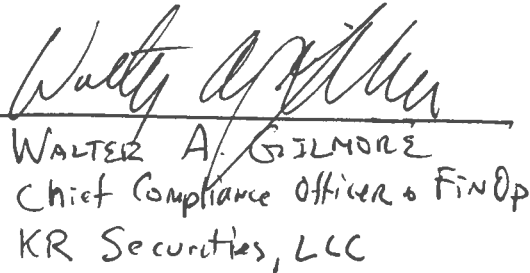 Walter A Gilmore
WALTER A. GILMORE
Chief Compliance Officer & FinOp
KR Securities, LLC